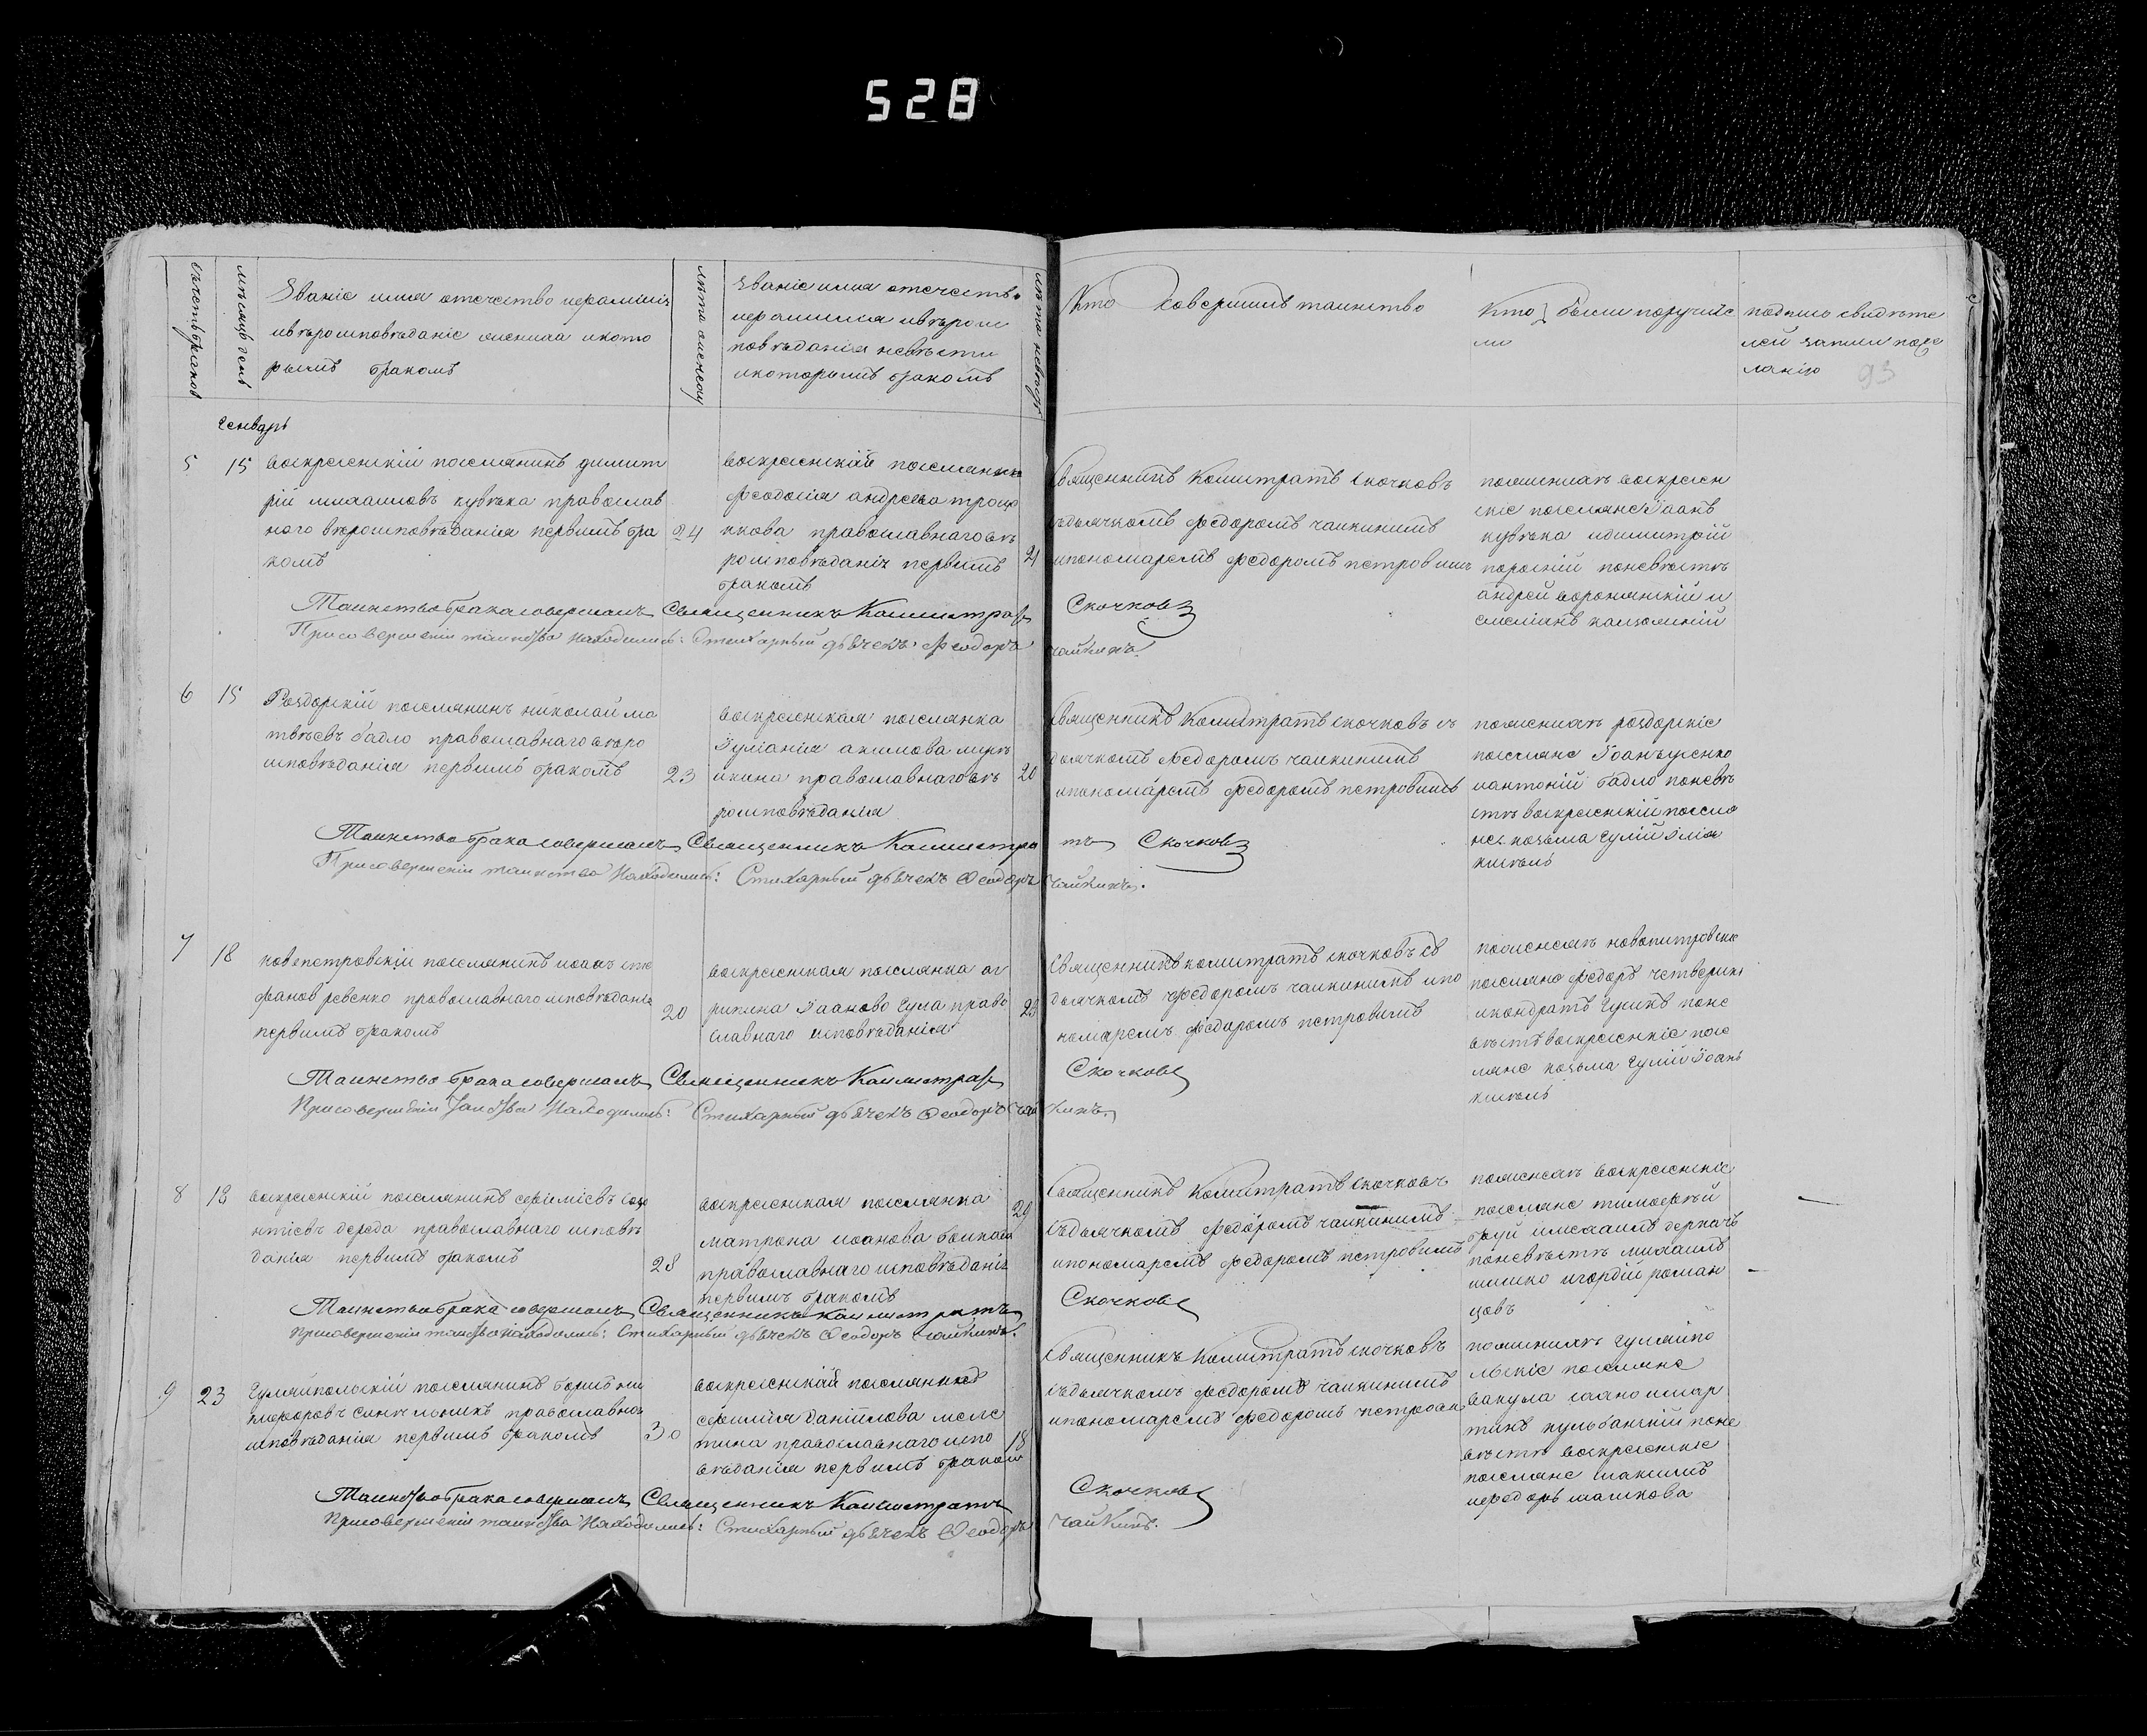 528
счетъ браков
мѣсяцъ день
Званіе имя отечество иерамилія
ивѣроисповѣданіе жениха икото
рымъ бракомъ
лѣта жениху
званіе имя отечеств
иерамилия ивѣрои
повѣданія невѣсти
икоторымъ бракомъ
лѣта невѣсте
Кто совершилъ таинство
Кто были поручите
ли
подпись свидѣте
лей записи поже
ланію
93
генварь
5
15
воскресенскій поселянинъ димит
рій михаиловъ кувѣка православ
ного вѣроисповѣданія первимъ бра
комъ
24
воскресенскій поселянка
феодосія андреева троц
кова православнаго вѣ
роисповѣданія первимъ
бракомъ
21
Священникъ Калистратъ скочковъ
съдьячкомъ федоромъ чаикинимъ
ипономаремъ федоромъ петровимъ
пожениху воскресен
скіе поселяне Іоанъ
кувѣка идимитрій
порскій поневѣстѣ
андрей воронянскій и
Таинство брака совершалъ Священникъ Калистратъ
Скочковъ
Присовершеніи таинства находились: Стихарный дьячекъ Феодоръ
чайкинъ
6
15
Роздорскій поселянинъ николай ма
твѣевъ бадло православнаго вѣро
исповѣданія первимъ бракомъ
23
воскресенская поселянка
Іуліанія акимова
икина православнаго вѣ
роисповѣданія
20
Священникъ Калистратъ скочковъ съ
дьячкомъ Федоромъ чаикинимъ
ипономаремъ федоромъ петровимъ
пожениху роздорскіе
поселяне Іоанъ ущенко
иантоній бадло поневѣ
стѣ воскресенскій поселя
не козьма гулій Ілія
кисель
Таинство брака совершалъ Священникъ Калистра
тъ Скочковъ
Присовершеніи таинства Находились: Стихарный дьячекъ Ѳеодоръ
чайкинъ.
7
18
новопетровскій поселянинъ иоанъ сте
фанов ревенко православнаго исповѣданія
первимъ бракомъ
20
воскресенская поселянка аг
рипина Іаанова гула право
славнаго исповѣданія
23
Священникъ калистратъ скочковъ съ
дьячкомъ федоромъ чаикинимъ ипо
номаремъ федоромъ петровимъ
пожениху новопитровские
поселяно федоръ четверик
икондратъ гусикъ поне
вѣстѣ воскресенскіе посе
ляне козьма гулій Іоанъ
кисель
Таинство брака совершалъ Священникъ Калистратъ
Скочковъ
Присовершеніи таинства Находились: Стихарный дьячекъ Ѳеодоръ Чай
кинъ
8
18
воскресенскій поселянинъ
нтіевъ дереда православнаго исповѣ
данія первимъ бракомъ
28
воскресенская поселянка
матрона иоанова боикова
православнаго исповѣданія
первимъ бракомъ
29
Священникъ Калистратъ скочковъ
съдьячкомъ федоромъ чаикинимъ
ипономаремъ федоромъ петровимъ
пожениху воскресенскіе
поселяне тимофѣй
буй имихаилъ деркачъ
поневѣстѣ михаилъ
шишко игордій роман
цовъ
Таинство брака совершалъ Священникъ Калистратъ
Скочковъ
Присовершеніи таинства Находились: Стихарный дьячекъ Ѳеодоръ Чайкинъ.
9
23
Гуляйпольскій поселянинъ борисъ ни
кифоровъ синельникъ православнаго
исповѣданія первимъ бракомъ
30
воскресенскій поселянка
Даніилова меле
тина православнаго испо
вѣданія первимъ бракомъ
18
Священникъ Калистратъ скочковъ
съдьячкомъ федоромъ чаикинимъ
ипономаремъ федоромъ петровим
пожениху гуляйпо
льскіе поселяне
вакула иімар
тинъ кульбанскій поне
вѣстѣ воскресенскіе
поселяне максимъ
иередоръ машкова
Таинство брака совершалъ Священникъ Калистратъ
Скочковъ
Присовершеніи таинства Находились: Стихарный дьячекъ Ѳеодоръ
Чайкинъ.